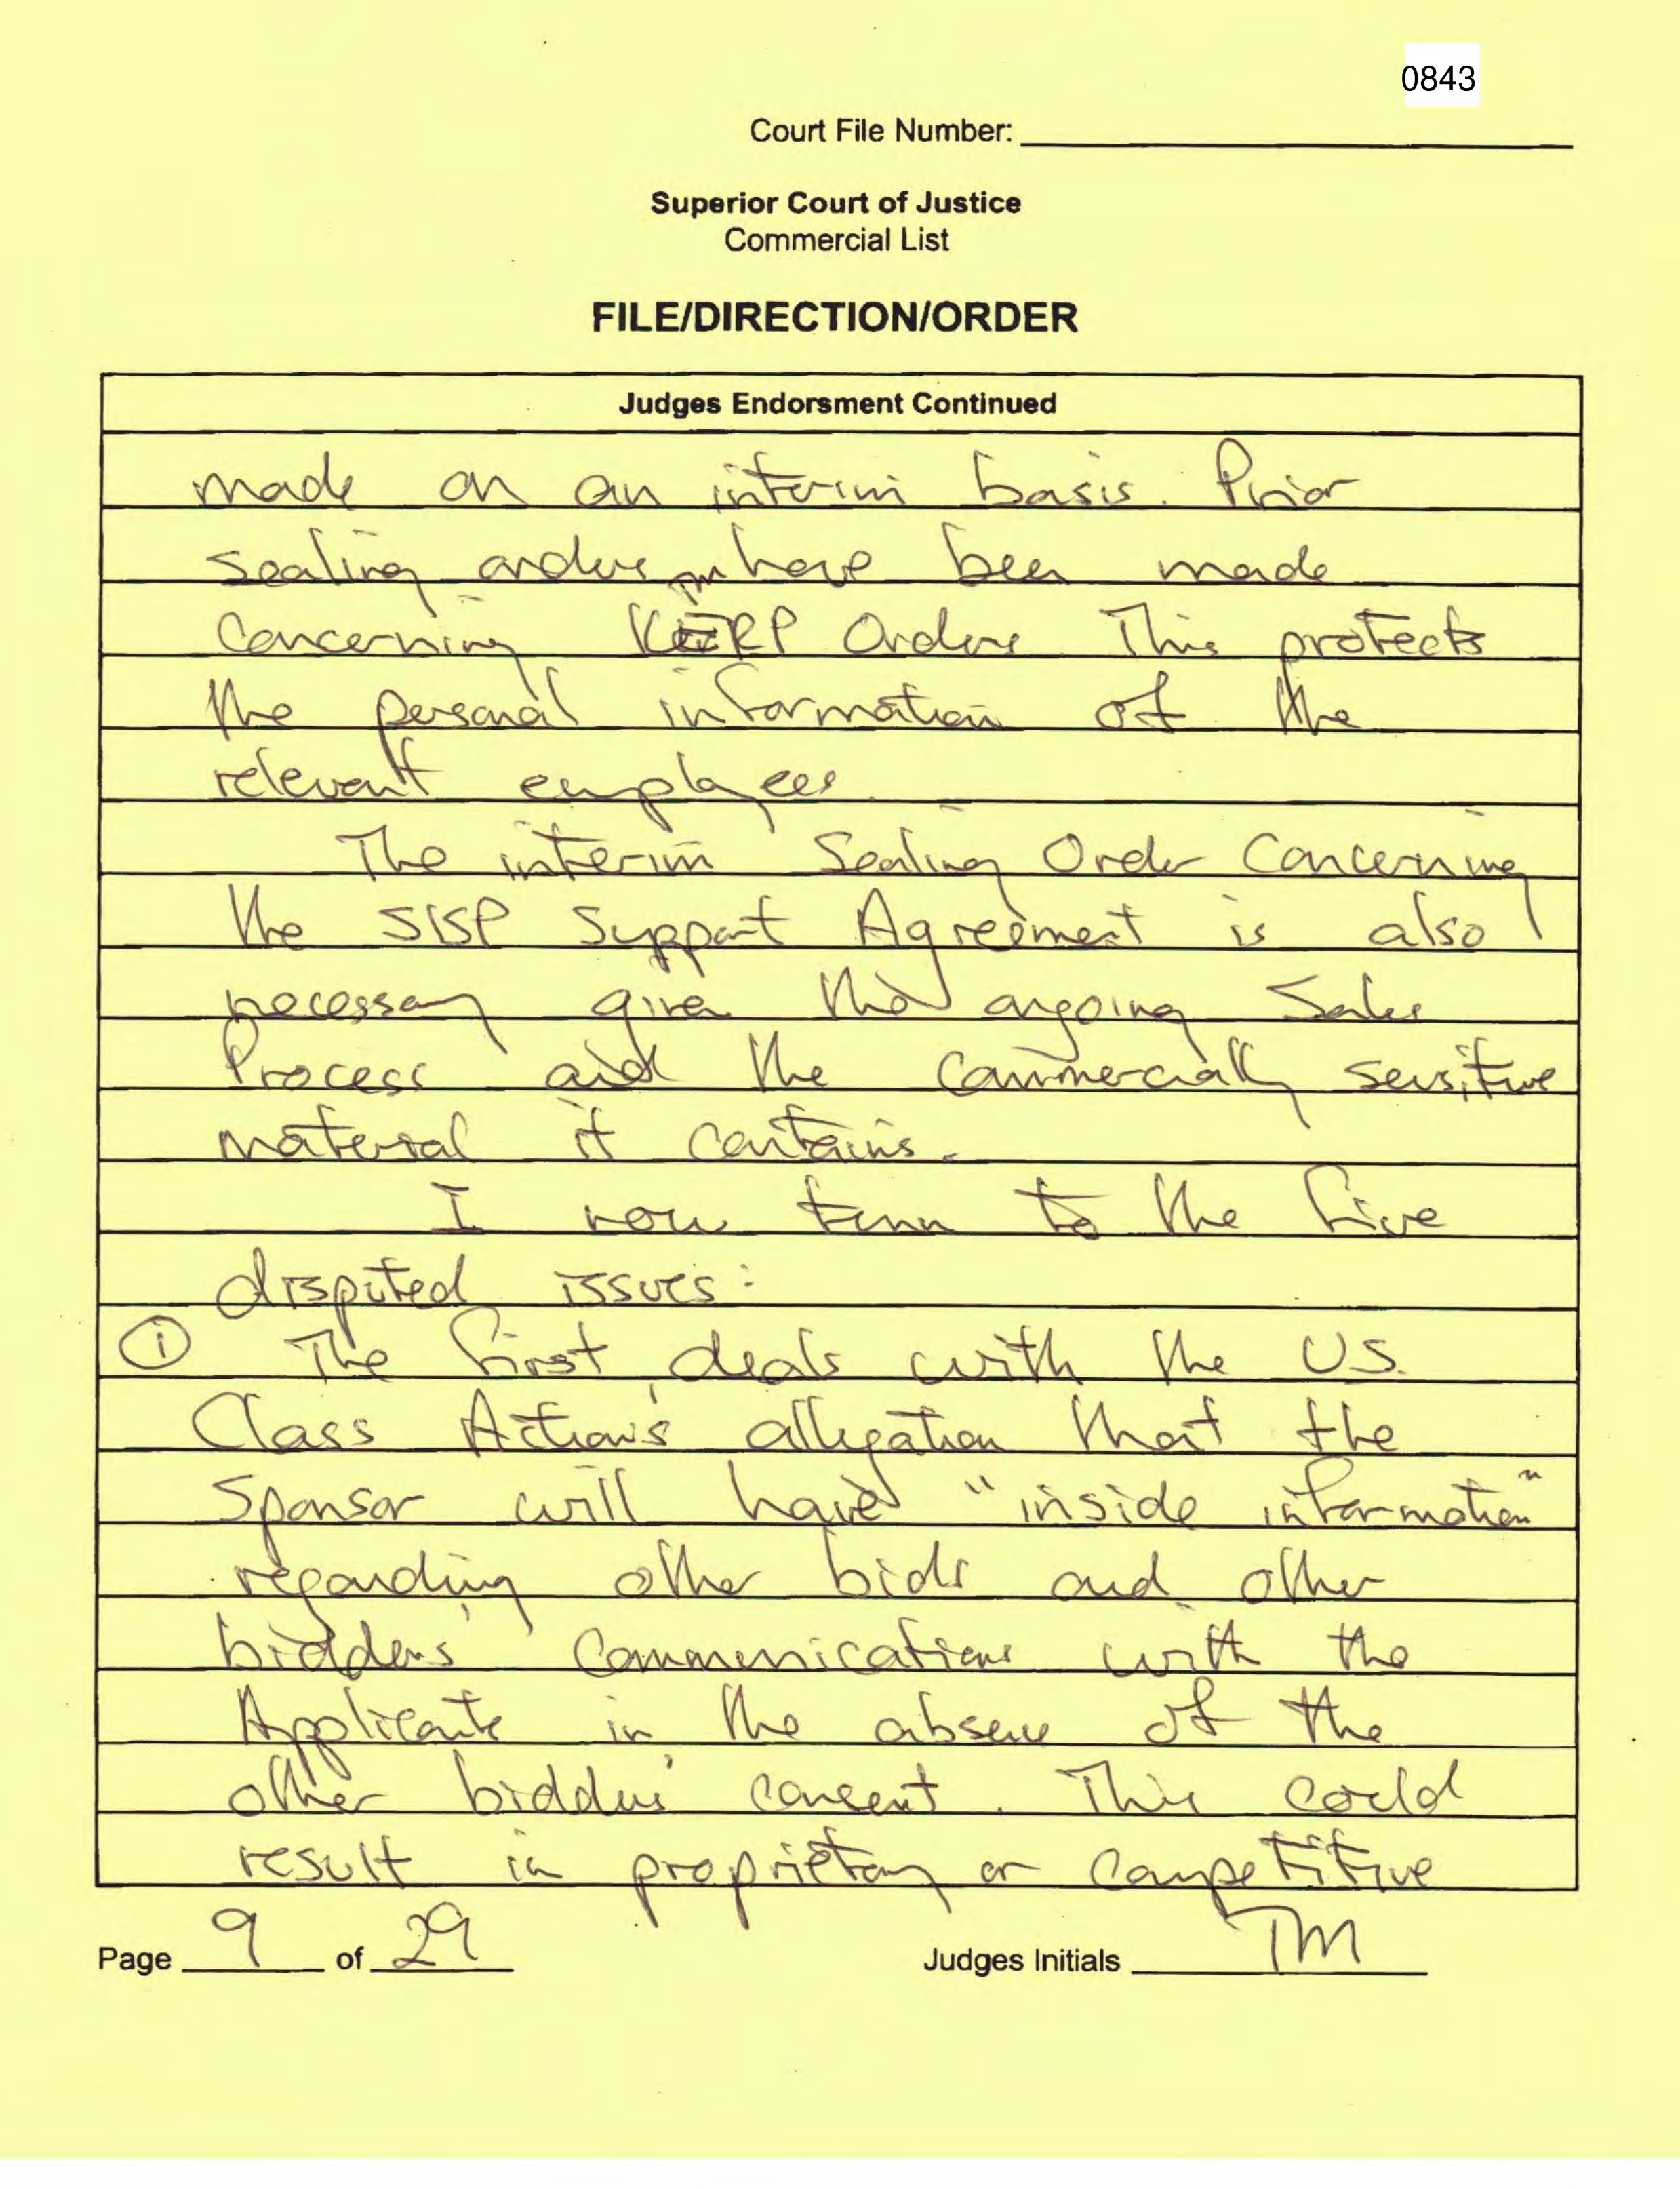 0843
Court File Number:
Superior Court of Justice
Commercial List
FILE/DIRECTION/ORDER
Judges Endorsment Continued
made on an interim basis. Prior
sealing orders have been made
concerning KERP Orders This protects
the personal information of the
relevant employees
The interim Sealing Order concerning
the SISP Support Agreement is also
necessary given the ongoing Sales
Process and the commercially sensitive
material it contains.
I now turn to the five
disputed issues:
① The first deals with the US.
Class Action's allegation that the
Sponsor will have "inside information"
regarding other bids and other
bidders' communications with the
Applicants in the absence of the
other bidders' consent. This could
result in proprietary or competitive
Page 9 of 29 Judges Initials TM